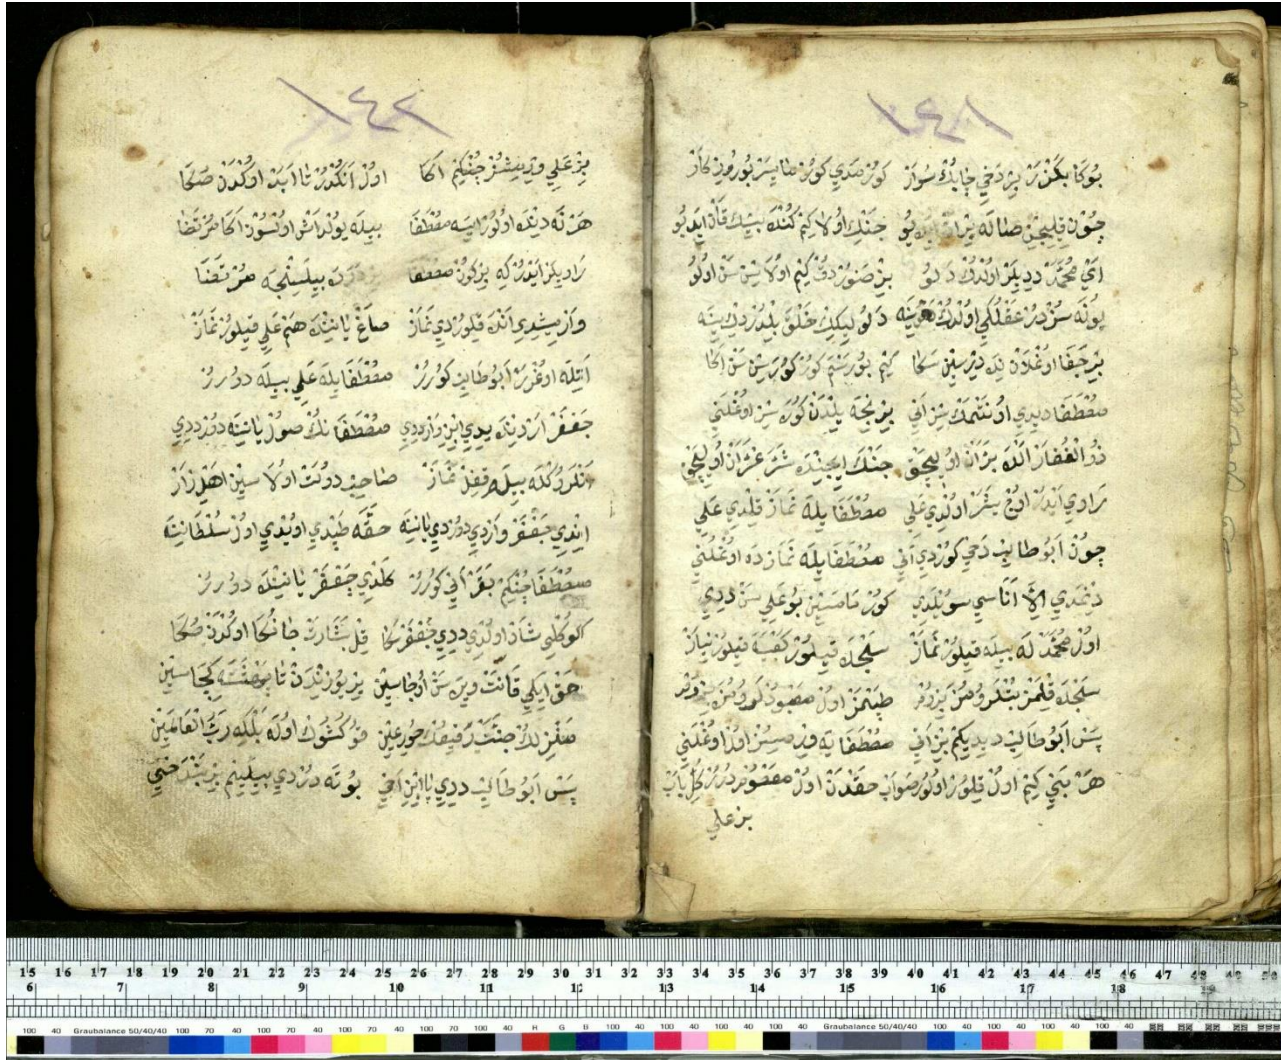 ١٤١
بُوكَا بَكْزَرْ بِرْ دَخِي چَابُكْ سُوَارْ كورْمَدِي كورْمَايِسَرْ بُورُوزِكَارْ
چُونْ قِلِيجِنْ صَالَه بِرْ جَنْكْ اُولَا كِمْ كُنْدَه بِيكْ قَانْ اَيْدِيُو
اَيْ مُحَمَّدْ دِدِيلَرْ اُولْدُكْ دَلُو بِزْ صَنُورُدُقْ كِيمْ اُولَاسِنْ سَنْ اُولُو
يُونَه سُزْدُرْ عَقْلُكِي اُولْدُكْ يِينَه دَلُولِيكِكْ خَلْقَه بِلْدُرْدِكْ يِينَه
بِرْ جَفَا اُوغْلَانْ نِه دِرْسِينْ سَكَا كِيمْ بُو رُسْتَمْ كُورُ كُورُرْسِنْ سَنْ اَكَا
مُصْطَفَا دِيدِي اُونُتْمَكْ سِزْ اَنِي بِزْ نِيجَه يِلْدَنْ كُورَه سِزْ اُوغْلَنِي
ذُو الْفُقَارْ اَلْدَه بَرَّانْ اُولِيجَقْ جَنْكْ اِيچِنْدَه شِيرِ غُرَّانْ اُولِيجَقْ
رَاوِي اَيْدَرْ اُونْ يَشَرْ اُولْدِي عَلِي مُصْطَفَا يِلَه نَمَازْ قِلْدِي عَلِي
چُونْ اَبُو طَالِبْ دَخِي كُورْدِي اَنِي مُصْطَفَا يِلَه نَمَازْدَه اُوغْلُنِي
دِنْمَدِي اِلَّا اَنَاسِي سُويْلَدِي كُورْمَامِسِينْ بُو عَلِي سَنْ دِدِي
اُولْ مُحَمَّدْ لَه بِيلَه قِيلُورْ نَمَازْ سَجْدَه قِيلُورْ كَعْبَيَه قِيلُورْ نِيَازْ
سَجْدَه قِلْمَزْ بُتْلَرُومُزْ بَرْ دُرُرْ طَپْنَمَزْ اُولْ مَعْبُودْلَرُومُزْ
پَسْ اَبُو طَالِبْ دِيدِي كِمْ بِزْ اَنِي مُصْطَفَا يَه وِرْمِشِزْ اُولْ اُوغْلَنِي
هَرْ نَيِي كِيمْ اُولْ قِلُورْ اُولُورْ صَوَابْ حَقْدَنْ اُولْ مَعْصُومْ دُرُرْ
بز علي
١٤٢
بِزْ عَلِي وِرْمِشُزْ چُنْكِيمْ اَكَا اُولْ اَنُكْدُرْ تَا اَبَدْ اُوكْدَنْ صُكَا
هَرْ نَه دِنْدَه اُولُورْ اِيسَه مُصْطَفَا بِيلَه يُولْدَاشْ اُولْسُونْ اَكَا مُرْتَضَا
رَاوِيلَرْ اَيْدُرْ كِه بِرْ كُونْ مُصْطَفَا بِيلَسِنْجَه مُرْتَضَا
وَارْمِيشِدِي اَنْدَه قِلُورْدِي نَمَازْ صَاغْ يَانِنْدَه هَمْ عَلِي قِيلُورْ نَمَازْ
اَتِيلَه اُوغْرَرْ اَبُو طَالِبْ كُورُرْ مُصْطَفَا يِلَه عَلِي بِيلَه دُورُرْ
جَعْفَرْ اَرْدِنْدَه يِدِي اِبْنِ وَارْدِدِي مُصْطَفَانُكْ صُولْ يَانِنَه دُورْ دِدِي
اَنْلَرُوكْلَه بِيلَه قِلْغِلْ نَمَازْ صَاحِبِ دَوْلَتْ اُولَاسِينْ اَهْلِ رَازْ
اِنْدِي جَعْفَرْ وَارْدِي دُورْدِي يَانِنَه حَقَّه طَپْدِي اُويْدِي اُولْ سُلْطَانِنَه
مُصْطَفَا چُنْكِيمْ بَقَرْ اَنِي كُورُرْ كَلْدِي جَعْفَرْ يَانِنْدَه دُورُرْ
كُوكْلِي شَادْ اُولْدِي دِدِي جَعْفَرْ سَكَا قِلْ بَشَارَتْ جَانُكَا اُوكْدَنْ صُكَا
حَقْ اِيكِي قَانَتْ وِيرَه سَنْ اُوچَاسِينْ يِرْ يُوزِنْدَنْ تَا بِهِشْتَه كِچَاسِينْ
مَنْزِلُكْ جَنَّتْ رَفِيقُكْ حُورِ عِينْ قُونُكْشُوكْ اُولَه بَلْكِه رَبُّ الْعَالَمِينْ
پَسْ اَبُو طَالِبْ دِدِي يَا اِبْنِ اَخِي بُو نَه دُرْ دِي بِيلَيِيمْ بِزْ بِنْدَخِي